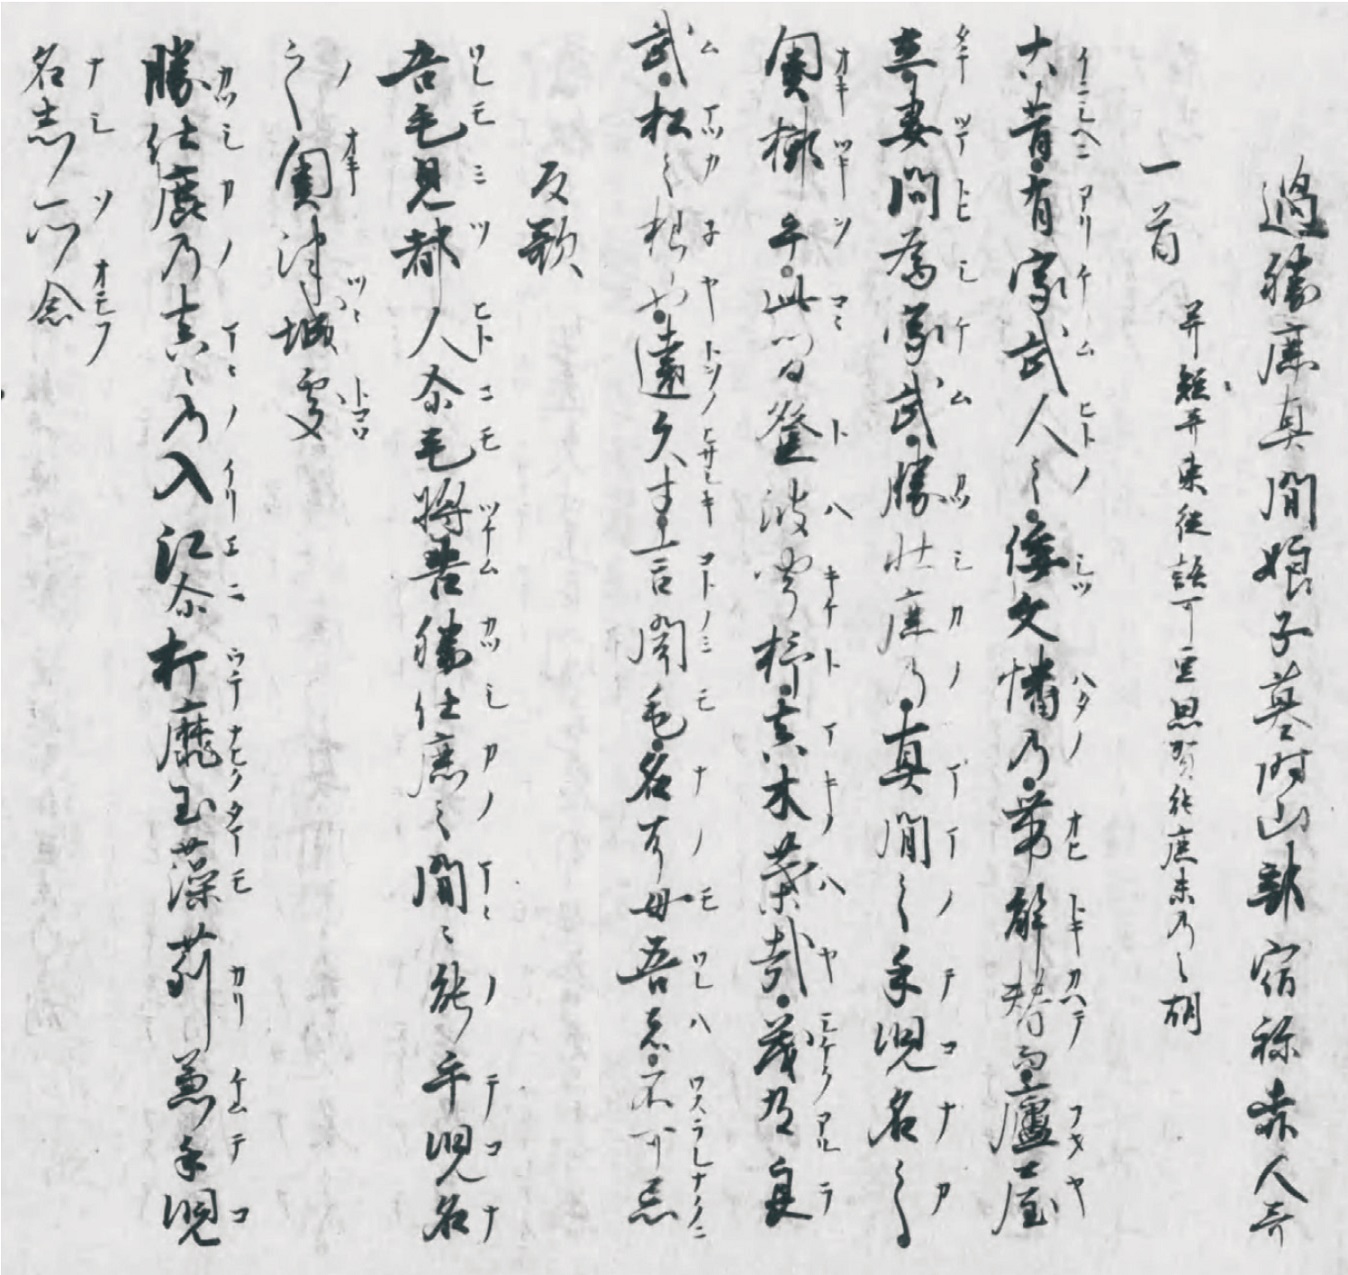 過勝鹿真間娘子墓時山部宿祢赤人哥
一首 并短哥 東俗語可豆思賀能麻末乃〻胡
古昔有家武人之倭文幡乃帶解替而廬屋
妻問為家武勝壮鹿乃真間之手児名之
奥槨乎此間登波聞杼真木葉哉茂有良
武松之根也遠久寸言聞毛名耳母吾者不可忘
反歌
吾毛見都人尓毛將告勝仕鹿之間〻能手児名
之奥津城処
勝仕鹿乃真〻乃入江尓打靡玉藻苅兼手児
名志所念